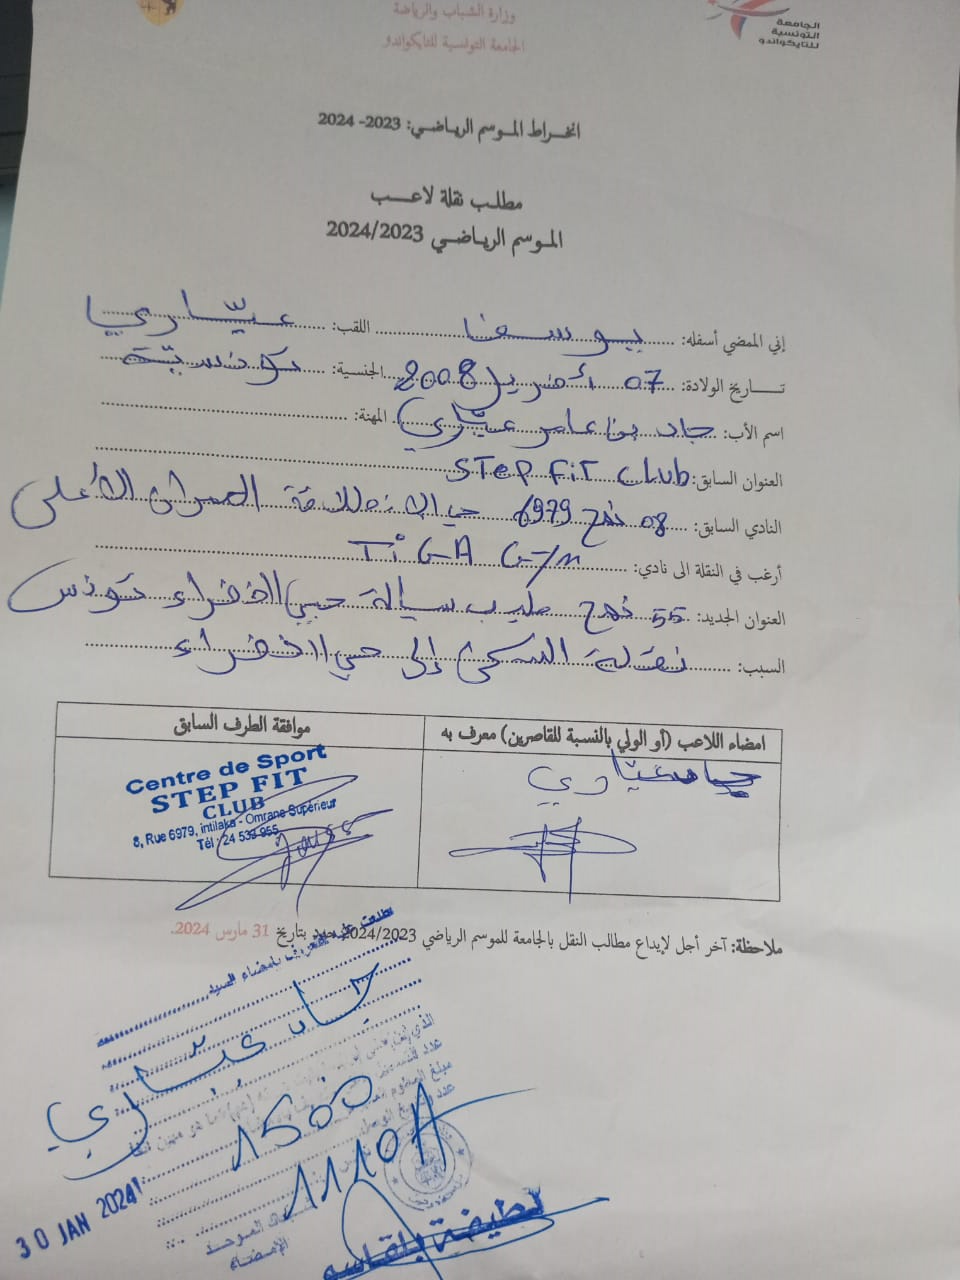 وزارة الشباب والرياضة
الجامعة التونسية للتايكواندو
الجامعة
التونسية
للتايكواندو
انخراط الموسم الرياضي: 2023- 2024
مطلب نقلة لاعب
الموسم الرياضي 2024/2023
إني الممضي أسفله: يوسف اللقب: عيّاري
تاريخ الولادة: 07 أفريل 2008 الجنسية: تونسيّة
اسم الأب: جاد بن عامر عيّاري المهنة:
العنوان السابق: STep FiT Club
النادي السابق: 08 نهج 6979 حي الانطلاقة العمران الأعلى
أرغب في النقلة الى نادي: TiGA Gym
العنوان الجديد: 55 نهج طيب سيالة حي الخضراء تونس
السبب: نقلة السكن إلى حي الخضراء
امضاء اللاعب (أو الولي بالنسبة للقاصرين) معرف به
موافقة الطرف السابق
جاد عيّاري
Centre de Sport
STEP FIT
CLUB
8, Rue 6979, intilaka - Omrane Supérieur
Tél : 24 539 955
ملاحظة: آخر أجل لإيداع مطالب النقل بالجامعة للموسم الرياضي 2024/2023 حدد بتاريخ 31 مارس 2024.
بإمضاء السيد
جاد عيّاري
1500
1110A
30 JAN 2024
لطيفة بلقاسم